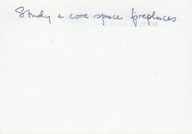 Study + core space fireplaces